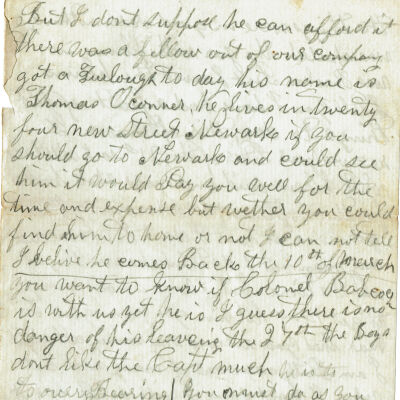 But I dont suppose he can afford it
there was a fellow out of our company
got a Furlough to day his name is
Thomas O'conner he lives in twenty
four new Street Newark if you
should go to Newark and could see
him it would Pay you well for the
time and expense but wether you could
find him to home or not I can not tell
I belive he comes Back the 10th of march
you want to know if Colonel Babcoc
is with us yet he is I guess there is no
danger of his leaveing the 27th the Boys
dont like the Capt much he is to
to overy Bearing / you must do as you